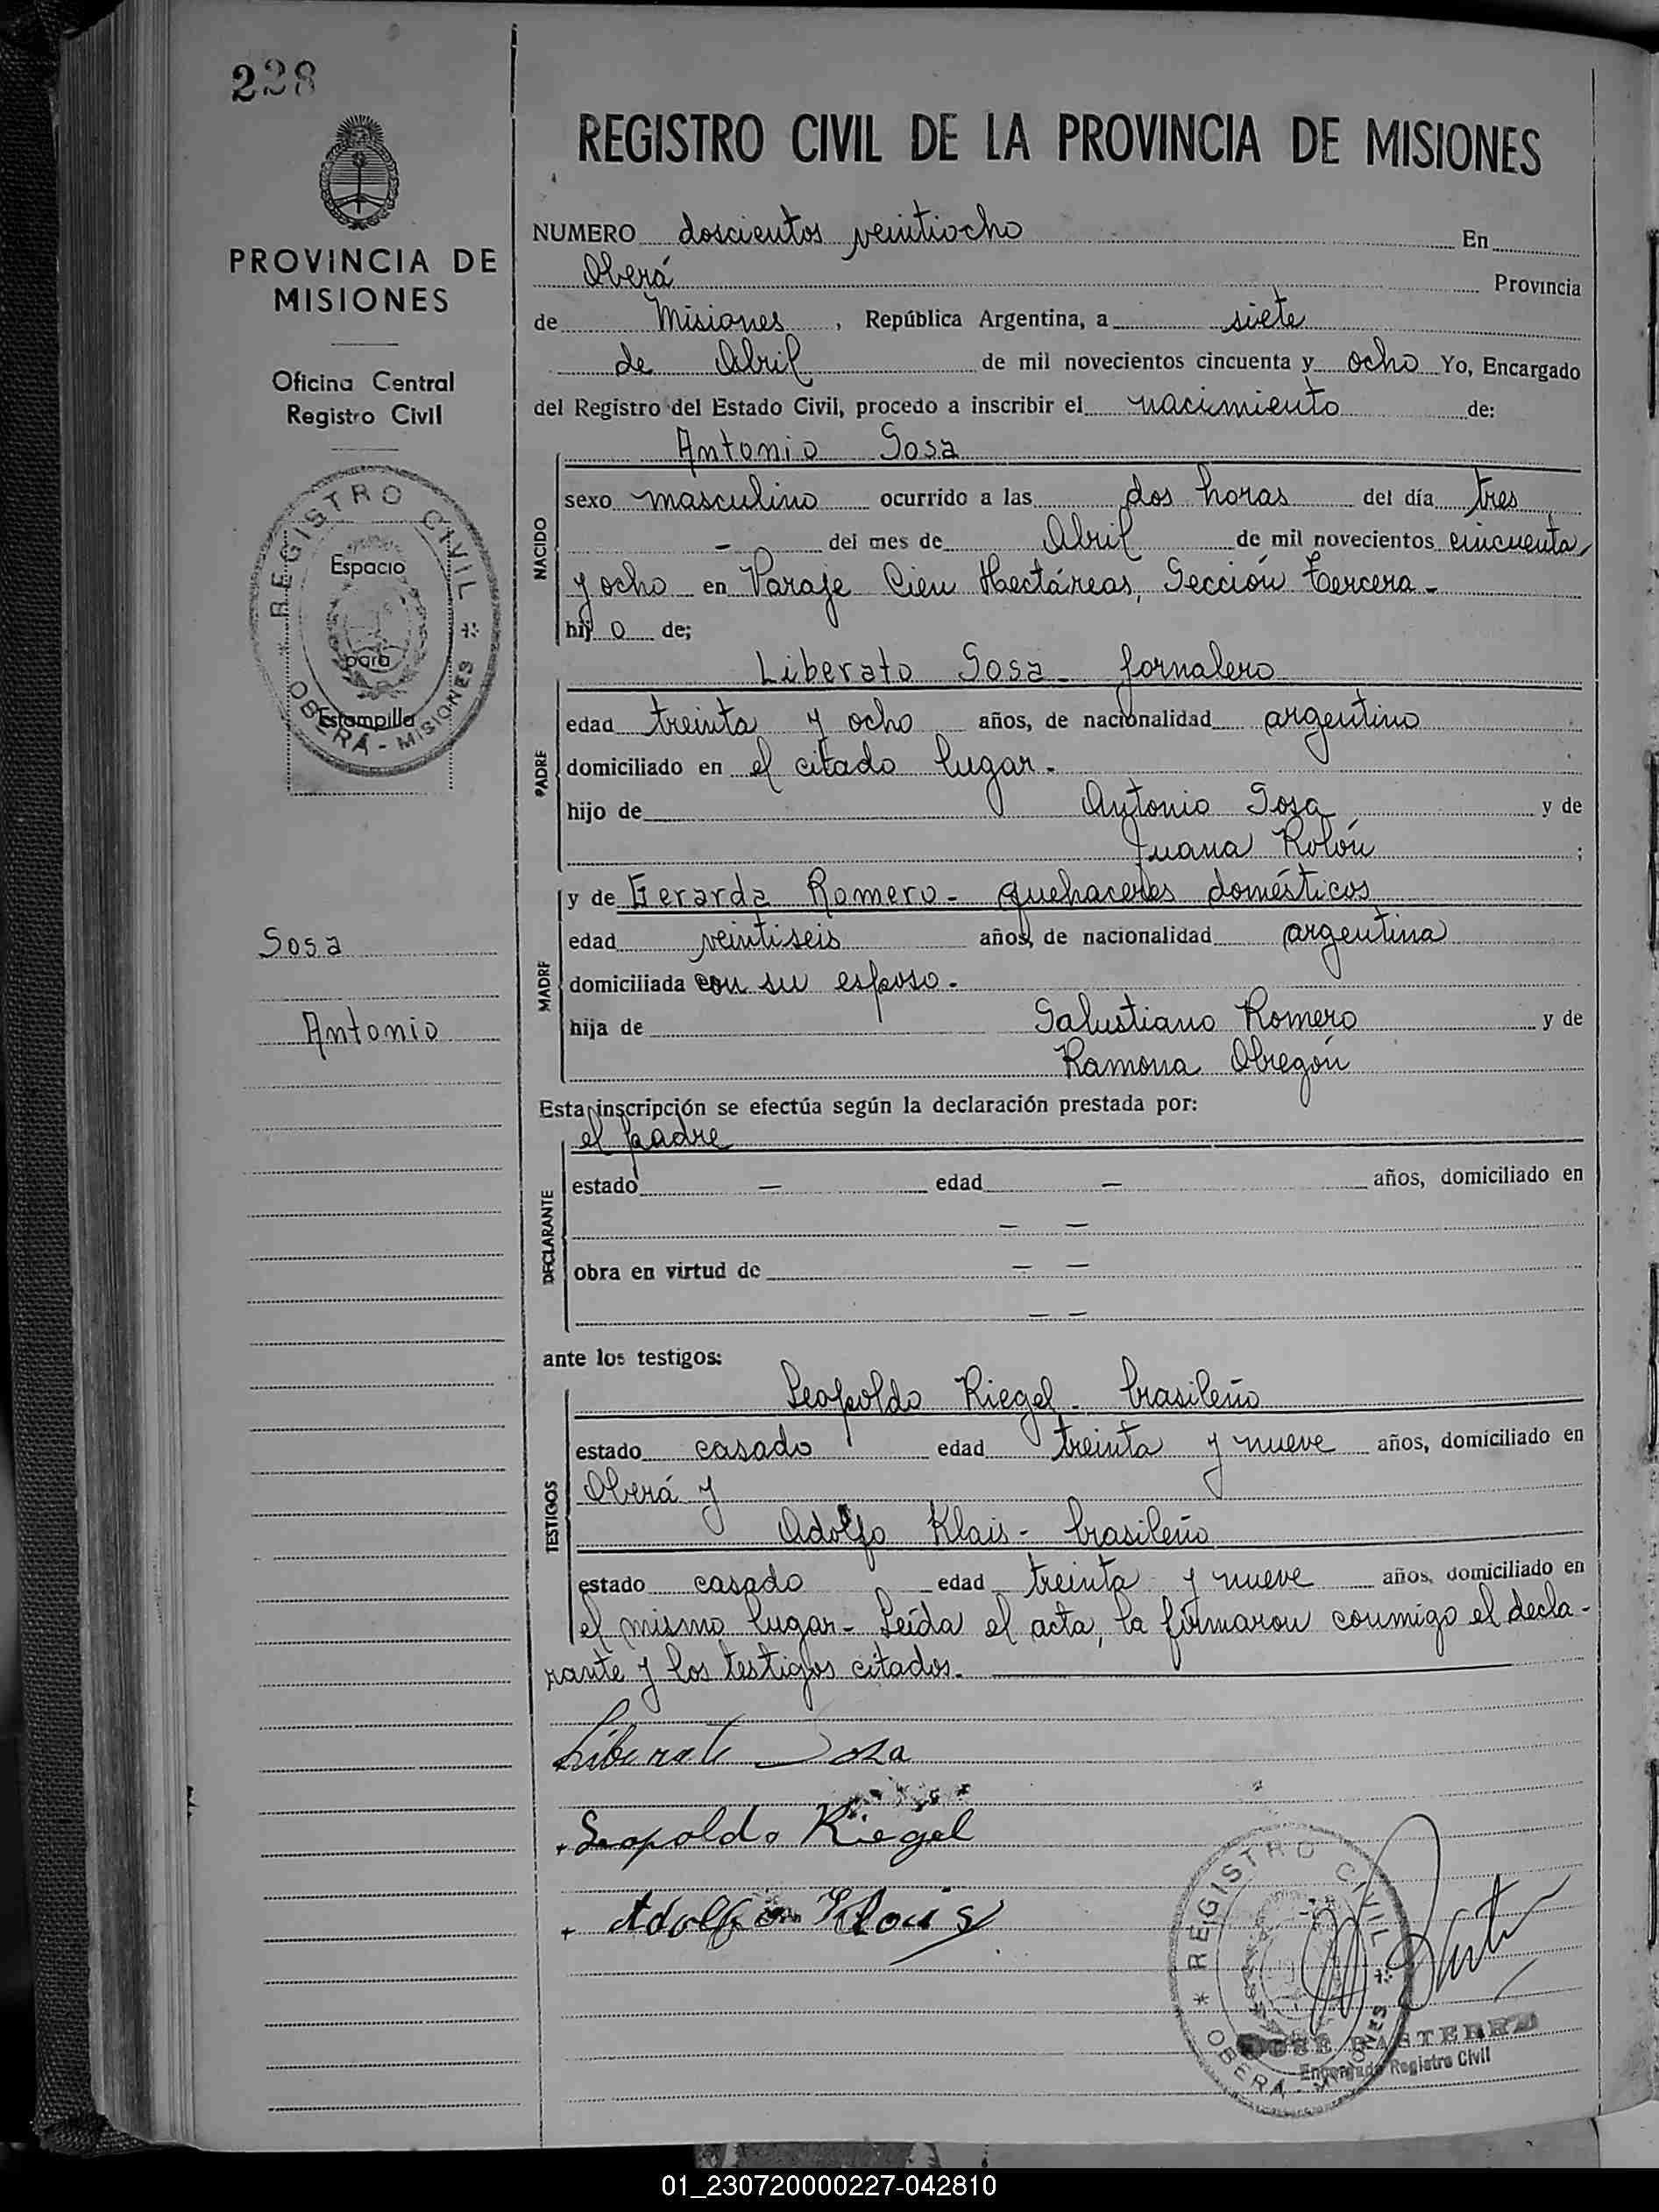 228
PROVINCIA DE
MISIONES
Oficina Central
Registro Civil
REGISTRO CIVIL
Espacio
para
Estampilla
OBERÁ - MISIONES
Sosa
Antonio
REGISTRO CIVIL DE LA PROVINCIA DE MISIONES
NUMERO doscientos veintiocho En
Oberá Provincia
de Misiones, República Argentina, a siete
de Abril de mil novecientos cincuenta y ocho Yo, Encargado
del Registro del Estado Civil, procedo a inscribir el nacimiento de:
Antonio Sosa
NACIDO
sexo masculino ocurrido a las dos horas del día tres
- del mes de Abril de mil novecientos cincuenta
y ocho en Paraje Cien Hectáreas, Sección Tercera -
hijo de;
Liberato Sosa - Jornalero
PADRE
edad treinta y ocho años, de nacionalidad argentino
domiciliado en el citado lugar -
hijo de Antonio Sosa y de
Juana Rolón ;
y de Gerarda Romero - quehaceres domésticos
MADRE
edad veintiseis años, de nacionalidad argentina
domiciliada con su esposo -
hija de Salustiano Romero y de
Ramona Obregón
Esta inscripción se efectúa según la declaración prestada por:
el padre
DECLARANTE
estado — edad — años, domiciliado en
— —
obra en virtud de — —
— —
ante los testigos:
Leopoldo Riegel - brasileño
TESTIGOS
estado casado edad treinta y nueve años, domiciliado en
Oberá y
Adolfo Klais - brasileño
estado casado edad treinta y nueve años, domiciliado en
el mismo lugar - Leída el acta, la firmaron conmigo el decla-
rante y los testigos citados.
Liberato Sosa
Leopoldo Riegel
Adolfo Klais
REGISTRO CIVIL
OBERÁ - MISIONES
Encargado Registro Civil
01_230720000227-042810